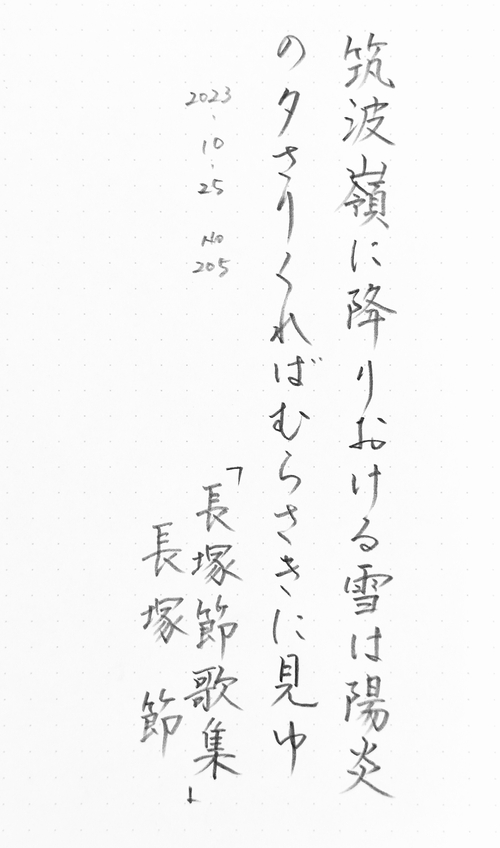 筑波嶺に降りおける雪は陽炎
の夕さりくればむらさきに見ゆ
「長塚節歌集」
長塚 節
2023
・
10
・
25
No
205